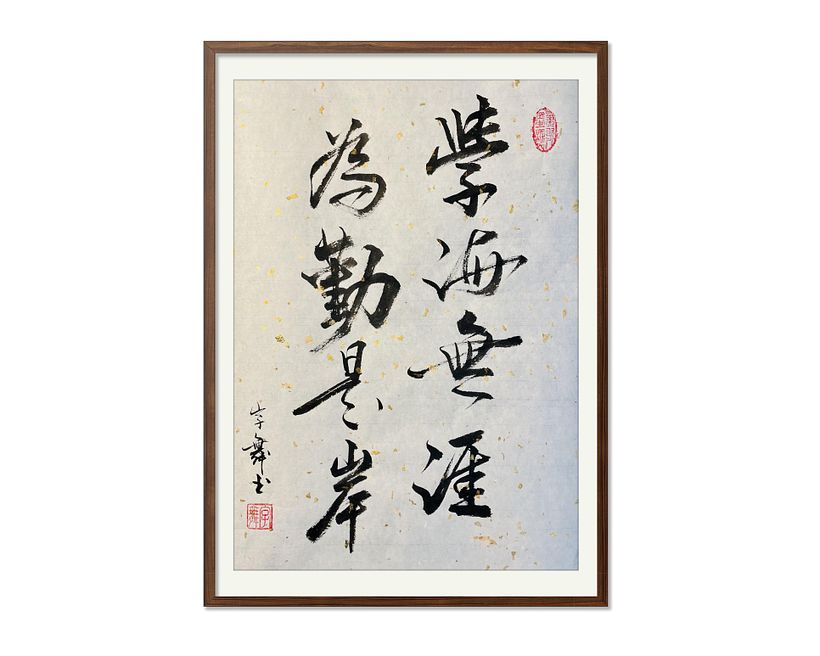 學海無涯
為勤是岸